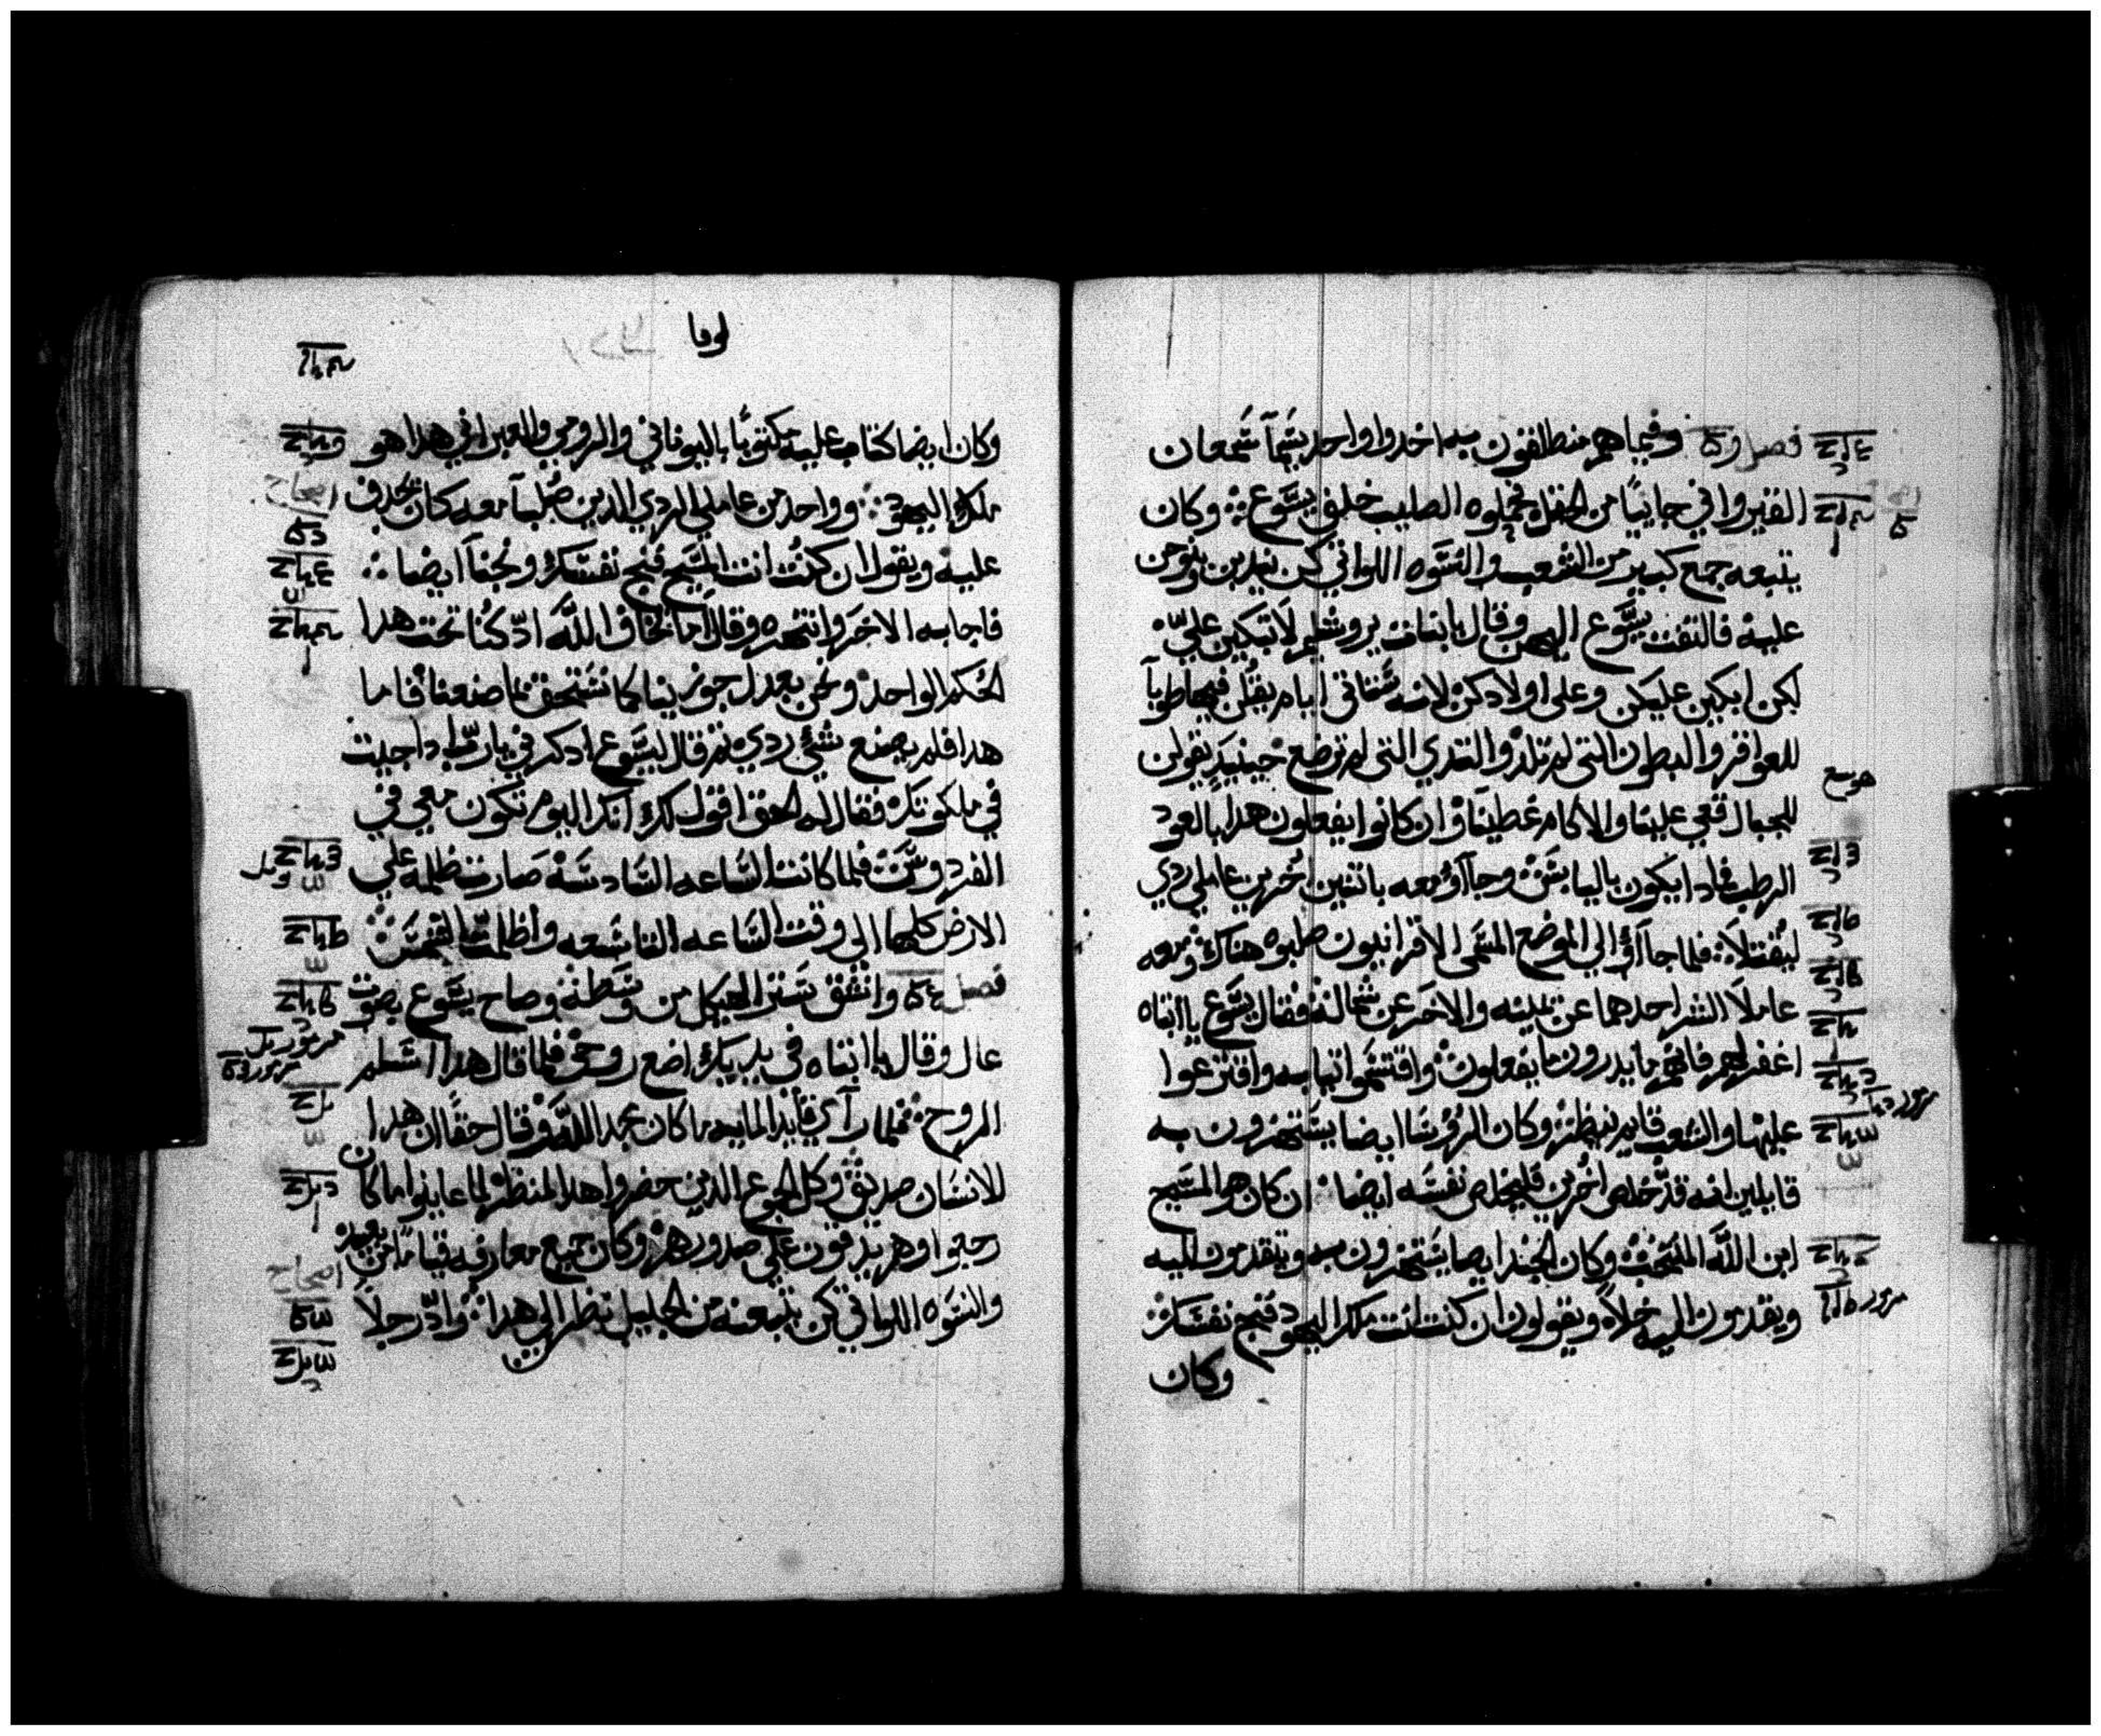 فصل وفيما هم منطلقون به اخدوا واحد يسَمآ سَمعان
القيرواني جانيًا من الحقل فحملوه الصليب خلف يسَوع وكان
يتبعه جمع كبير من الشعب والنسَوه اللواتي كن يندبن وينوحن
عليه فالتفت يسَوع اليهن وقال يابنات يروشليم لا تبكين عليّ
لكن ابكين عليكن وعلى اولادكن لانه سَتاتي ايام يقلن فيها طوبآ
للعواقر والبطون التى لم تلد والتدي التى لم ترضع حينيدٍ يقولن
للجبال قعي علينا وللاكام غطينا وان كانوا يفعلون هدا بالعود
الرطب فمادا يكون باليابسَ وجاآؤ معه باتنين اُخرين عاملي ردي
ليُقتلآ فلما جاآؤ الي الموضع المسَمى الاقرانيون صلبوه هناك ومعه
عاملآ الشر احدهما عن يمينه والاخرَ عن شماله فقال يسَوع يا ابتاه
اغفر لهم فانهم ما يدرون ما يفعلون واقتسَموا تيابه واقترعوا
عليها والشعب قايم ينظر وكان الرؤسَا ايضا يسَتهزون به
قايلين انه قد خلص اخرين فليخلص نفسَه ايضا ان كان هو المسَيح
ابن اللَّه المنتجب وكان الجند ايضا يسَتهزون به ويتقدمون اليه
ويقدمون اليه خلاً ويقولون ان كنت انت ملك اليهود فنج نفسَك
وكان
هوسع
لوقا
وكان ايضا كتاب عليه مكتوبًا باليوناني والرومي والعبراني هدا هو
ملك اليهود وواحد من عاملي الردي الدين صُلبآ معه كان يجدف
عليه ويقول ان كنت انت المسَيح فنج نفسَك ونجنآ ايضا
فاجابه الاخرَ وانتهره وقال اما تخاف اللَّه ادّ كُنا تحت هدا
الحُكم الواحد ونحن بعدل جوزينا كما نسَتحق بما صنعنا فاما
هدا فلم يصنع شئ ردي تم قال ليسَوع ادكرني يارب ادا جيت
في ملكوتك فقال له الحق اقول لك انك اليوم تكون معي في
الفردوسَ فلما كانت السَاعه السَادسَه صَارت ظلمه علي
الارض كلها الي وقت السَاعه التاسَعه واظلمت الشمسَ
فصل وانشق سَتر الهيكل من وسَطه وصاح يسَوع بصوت
عال وقال يا ابتاه في يديك اضع روحي فلما قال هدا اسَلم
الروح فلما رآي قايد المايه ما كان مجد اللَّه وقال حقًا ان هدا
للانسَان صديق وكل الجمع الدين حضروا هدا المنظر لما عاينوا ما كان
رجعوا وهم يدقون علي صدورهم وكان جميع معارفه قيامًا من بعيد
والنسَوه اللواتي كن يتبعنه من الجليل ينظرن الي هدا وادّ رجلاً
اصحاح
اصحاح